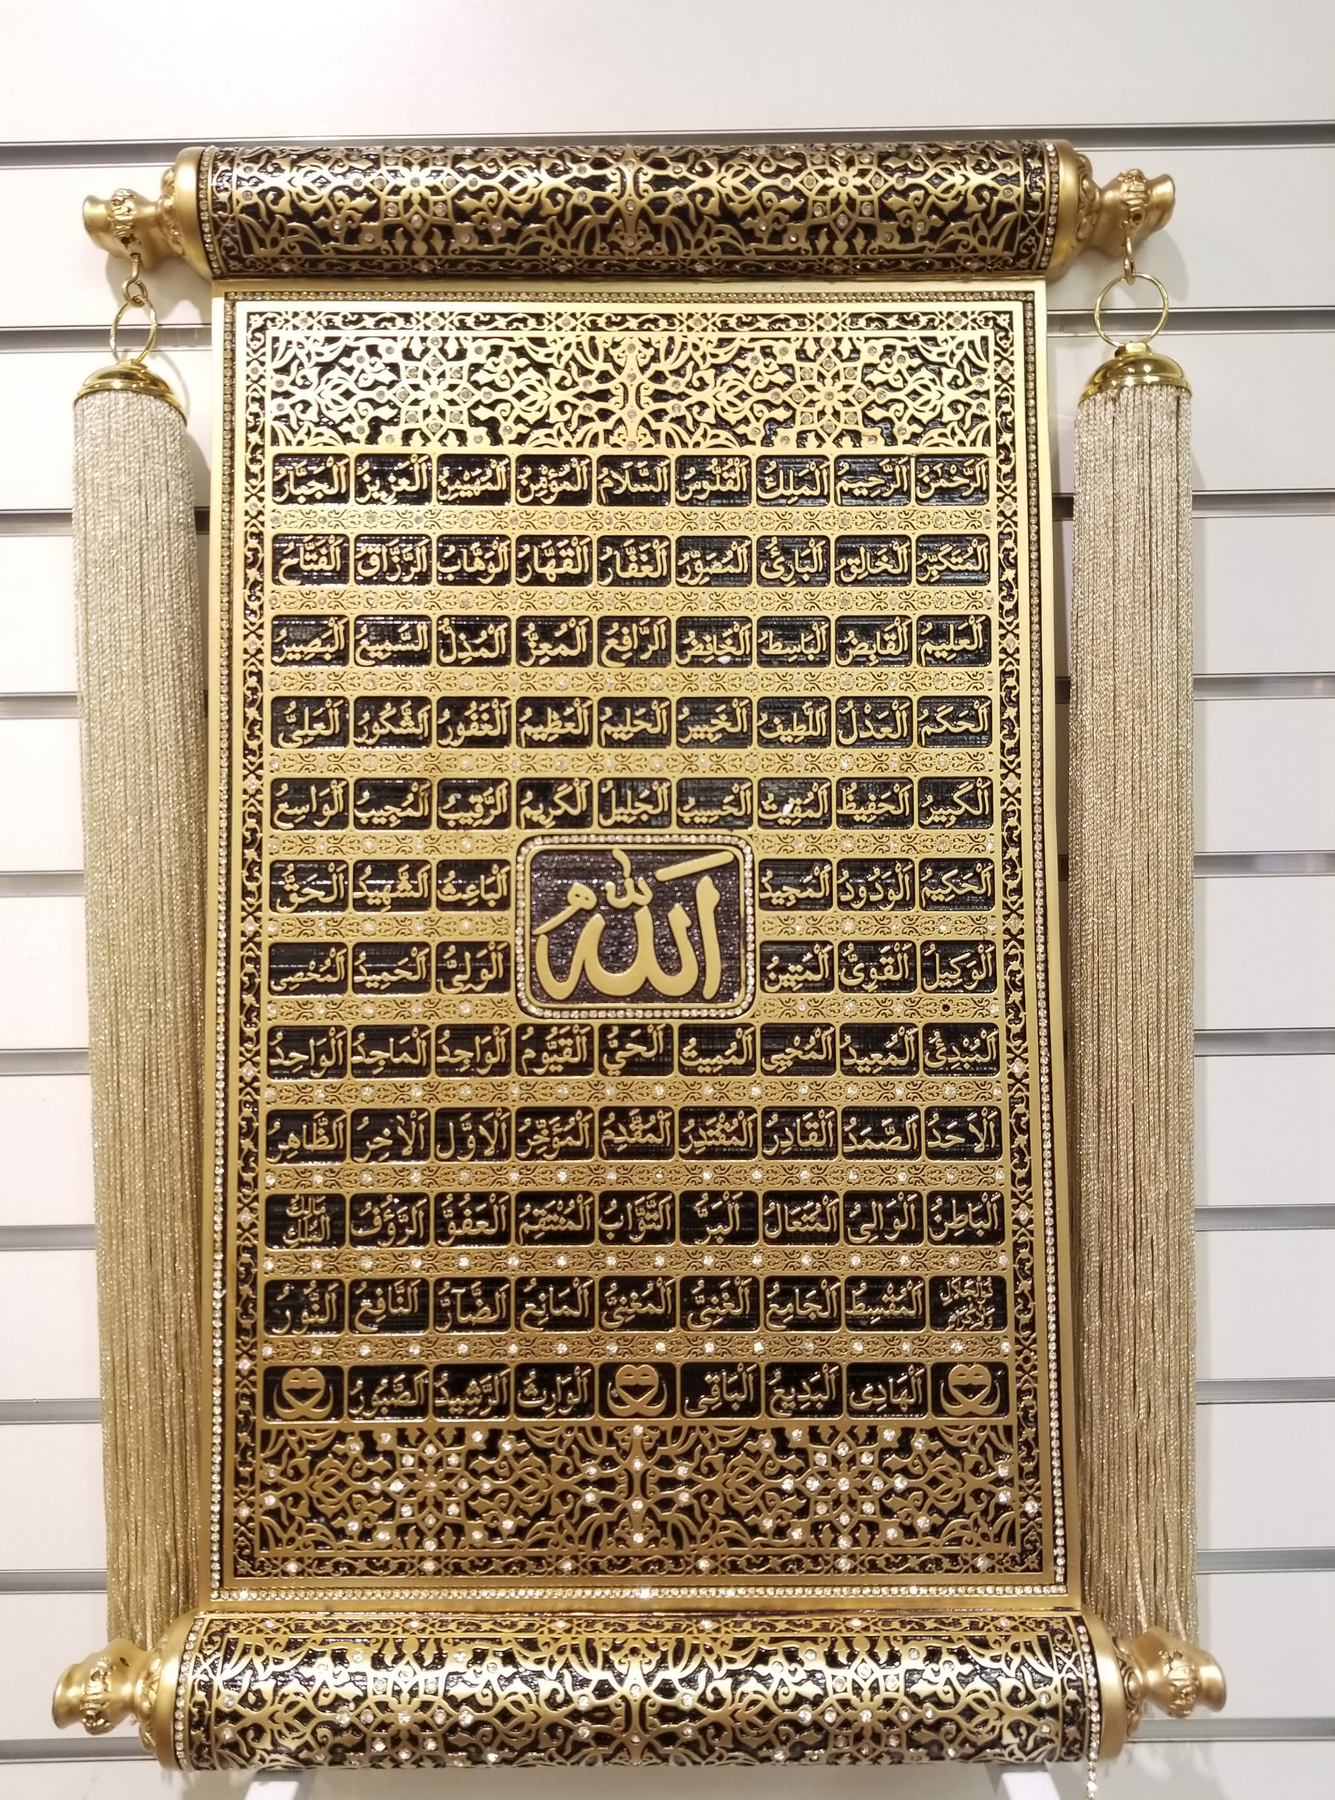 الرَّحْمٰنُ الرَّحِيمُ الْمَلِكُ الْقُدُّوسُ السَّلَامُ الْمُؤْمِنُ الْمُهَيْمِنُ الْعَزِيزُ الْجَبَّارُ
الْمُتَكَبِّرُ الْخَالِقُ الْبَارِئُ الْمُصَوِّرُ الْغَفَّارُ الْقَهَّارُ الْوَهَّابُ الرَّزَّاقُ الْفَتَّاحُ
الْعَلِيمُ الْقَابِضُ الْبَاسِطُ الْخَافِضُ الرَّافِعُ الْمُعِزُّ الْمُذِلُّ السَّمِيعُ الْبَصِيرُ
الْحَكَمُ الْعَدْلُ اللَّطِيفُ الْخَبِيرُ الْحَلِيمُ الْعَظِيمُ الْغَفُورُ الشَّكُورُ الْعَلِيُّ
الْكَبِيرُ الْحَفِيظُ الْمُقِيتُ الْحَسِيبُ الْجَلِيلُ الْكَرِيمُ الرَّقِيبُ الْمُجِيبُ الْوَاسِعُ
الْحَكِيمُ الْوَدُودُ الْمَجِيدُ الْبَاعِثُ الشَّهِيدُ الْحَقُّ
الله
الْوَكِيلُ الْقَوِيُّ الْمَتِينُ الْوَلِيُّ الْحَمِيدُ الْمُحْصِي
الْمُبْدِئُ الْمُعِيدُ الْمُحْيِي الْمُمِيتُ الْحَيُّ الْقَيُّومُ الْوَاجِدُ الْمَاجِدُ الْوَاحِدُ
الْاَحَدُ الصَّمَدُ الْقَادِرُ الْمُقْتَدِرُ الْمُقَدِّمُ الْمُؤَخِّرُ الْاَوَّلُ الْاٰخِرُ الظَّاهِرُ
الْبَاطِنُ الْوَالِي الْمُتَعَالُ الْبَرُّ التَّوَّابُ الْمُنْتَقِمُ الْعَفُوُّ الرَّؤُفُ مَالِكُ الْمُلْكِ
ذُو الْجَلَالِ وَالْاِكْرَامِ الْمُقْسِطُ الْجَامِعُ الْغَنِيُّ الْمُغْنِي الْمَانِعُ الضَّآرُّ النَّافِعُ النُّورُ
الْهَادِي الْبَدِيعُ الْبَاقِي الْوَارِثُ الرَّشِيدُ الصَّبُورُ